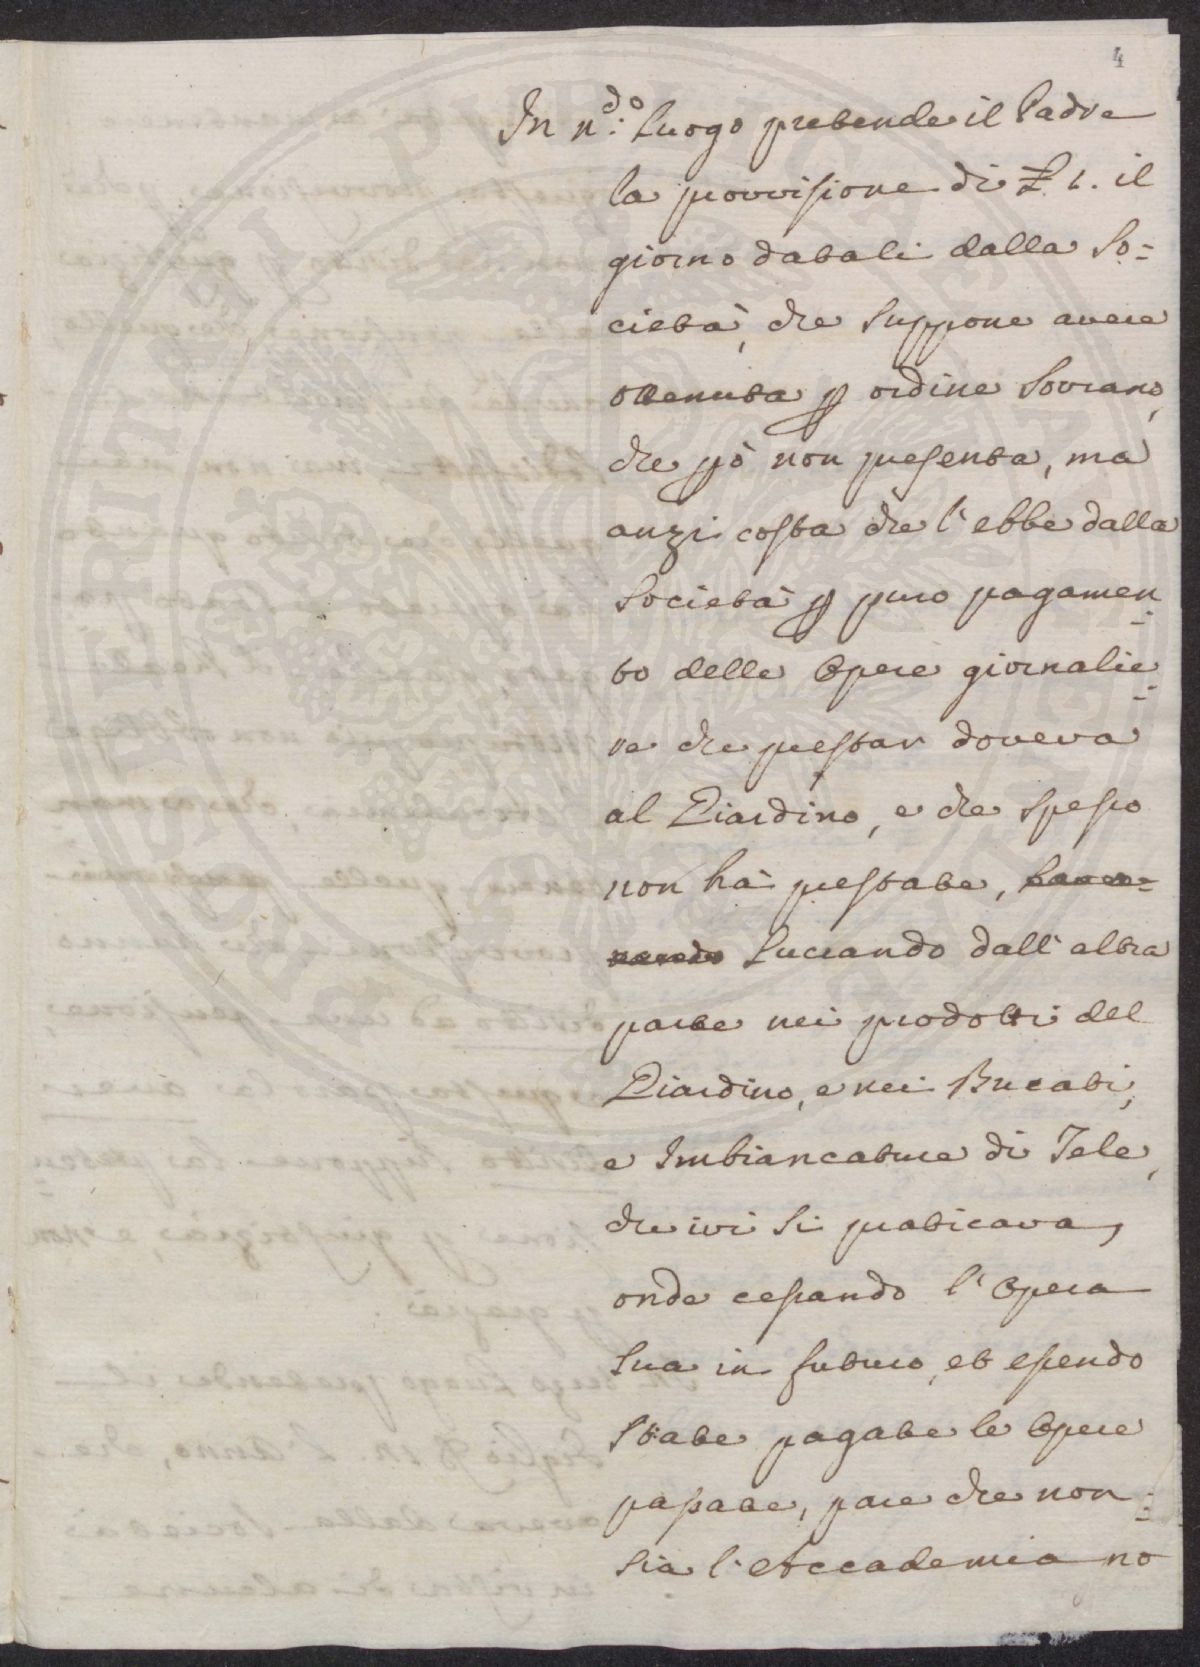 4
In n.do Luogo pretende il Padre
la provvisione di £. 1. il
giorno datali dalla So=
cietà, che suppone avere
ottenuta p ordine Sovrano,
che pò non presenta, ma
anzi costa che l'ebbe dalla
Società p puro pagamen=
to delle Opere giornalie=
re che prestar doveva
al Giardino, e che spesso
non hà prestate,
lucrando dall'altra
parte nei prodotti del
Giardino, e nei Bucati,
e Imbiancature di Tele,
che ivi si praticava,
onde cessando l'Opera
sua in futuro, et essendo
state pagate le Opere
passate, pare che non
sia l'Accademia no